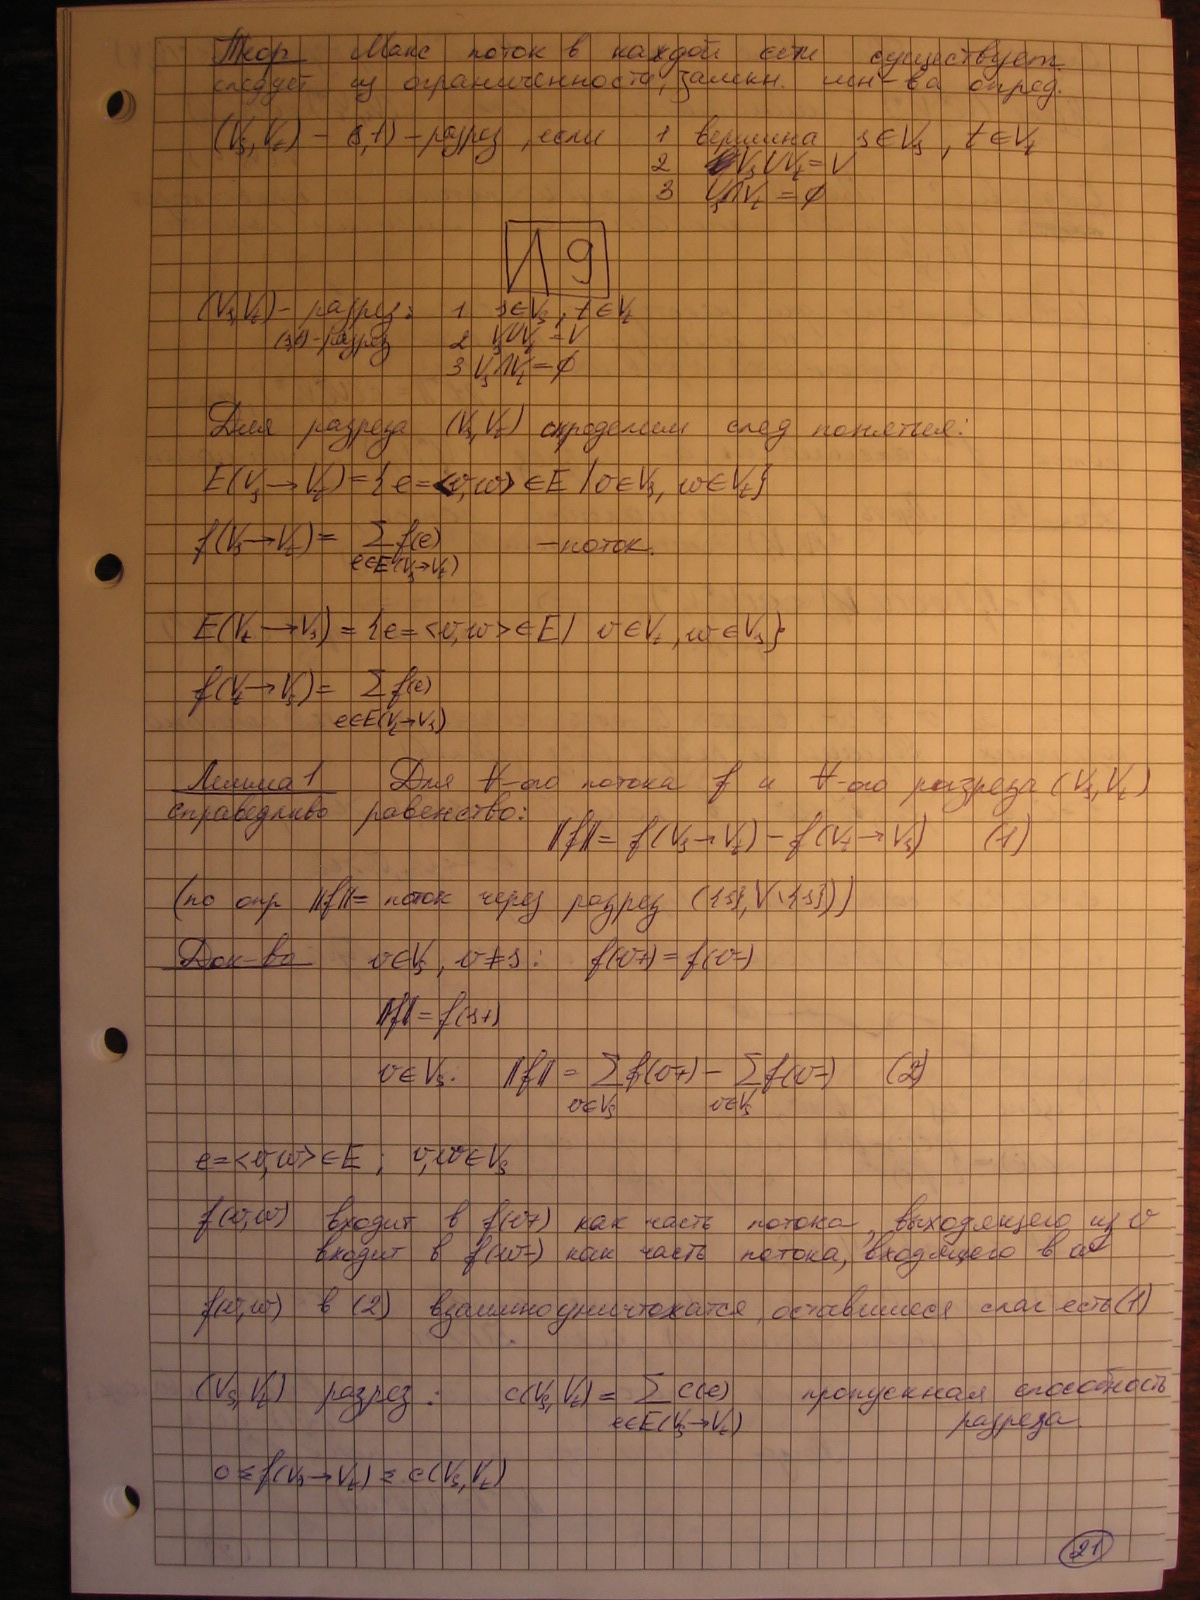 Теор Макс поток в каждой сети существует
следует из ограниченности, замкн. мн-ва опред.
(V_s, V_t) - (s,t) - разрез, если 1 вершина s∈V_s, t∈V_t
2 V_s∪V_t=V
3 V_s∩V_t=∅
Л9
(V_s,V_t) - разрез: 1 s∈V_s, t∈V_t
(s,t)-разрез 2 V_s∪V_t=V
3 V_s∩V_t=∅
Для разреза (V_s,V_t) определим след понятия:
E(V_s→V_t)={e=<v,w>∈E | v∈V_s, w∈V_t}
f(V_s→V_t)= Σ f(e) - поток.
e∈E(V_s→V_t)
E(V_t→V_s)={e=<v,w>∈E | v∈V_t, w∈V_s}
f(V_t→V_s)= Σ f(e)
e∈E(V_t→V_s)
Лемма 1 Для ∀-ого потока f и ∀-ого разреза (V_s,V_t)
справедливо равенство:
||f||= f(V_s→V_t) - f(V_t→V_s) (1)
(по опр ||f||= поток через разрез ({s},V\{s}))
Док-во v∈V_s, v≠s: f(v+)=f(v-)
||f||=f(s+)
v∈V_s. ||f||= Σ f(v+) - Σ f(v-) (2)
v∈V_s v∈V_s
e=<v,w>∈E; v,w∈V_s
f(v,w) входит в f(v+) как часть потока, выходящего из v
входит в f(w-) как часть потока, входящего в w
f(v,w) в (2) взаимноуничтожатся, оставшиеся слаг есть (1)
(V_s,V_t) разрез: c(V_s,V_t)= Σ c(e) пропускная способность
e∈E(V_s→V_t) разреза
0≤f(V_s→V_t)≤c(V_s,V_t)
21